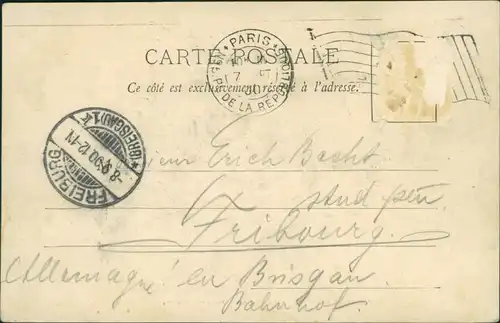 PARIS
Pl. DE LA REPUBLIQUE
CARTE POSTALE
Ce côté est exclusivement réservé à l'adresse.
FREIBURG
* (BREISGAU) 1.
-8.9.00.12-1N
Erich Bacht
stud
Fribourg.
Allemagne en Brisgau
Bahnhof.